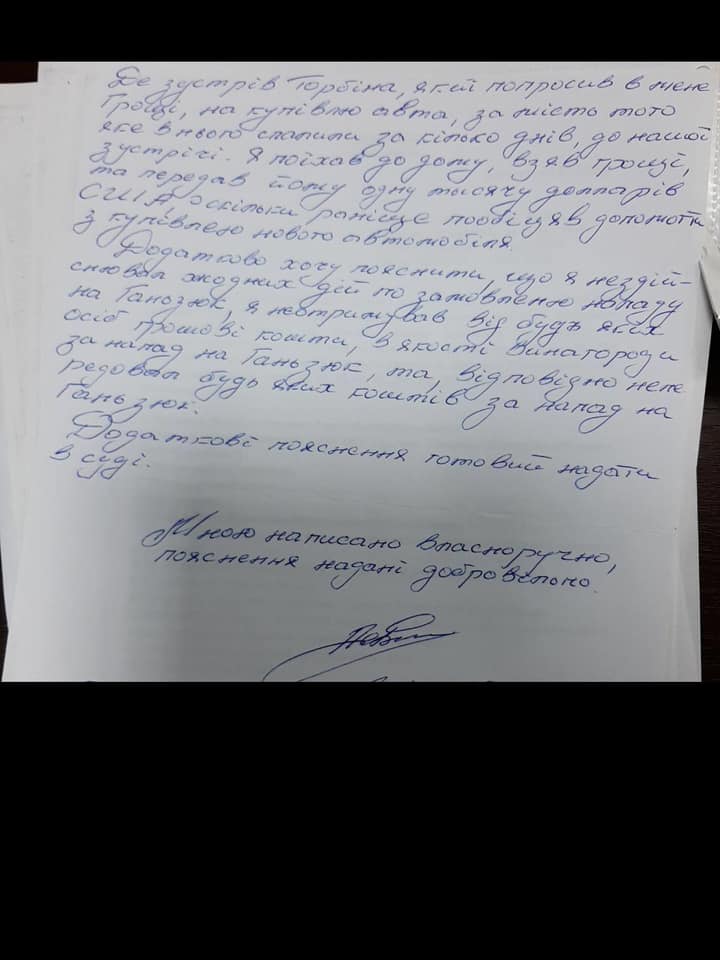 Де зустрів Торбіна, який попросив в мене
гроші, на купівлю авта, за мість того
яке в нього спалили за кілько днів, до нашої
зустрічі. Я поїхав до дому, взяв гроші,
та передав йому одну тысячу долларів
США, оскільки раніше пообіцяв допомогти
з купівлею нового автомобіля.
Додатково хочу пояснити, що я нездій-
снювал жодних дій по замовленню нападу
на Ганьзюк, я неотримував від будь яких
осіб грошові кошти, в якості винагороди
за напад на Ганьзюк, та, відповідно непе
редовал будь яких коштів за напад на
Ганьзюк.
Додаткові пояснення готовий надати
в суді.
Мною написано власноручно,
пояснення надані добровільно.